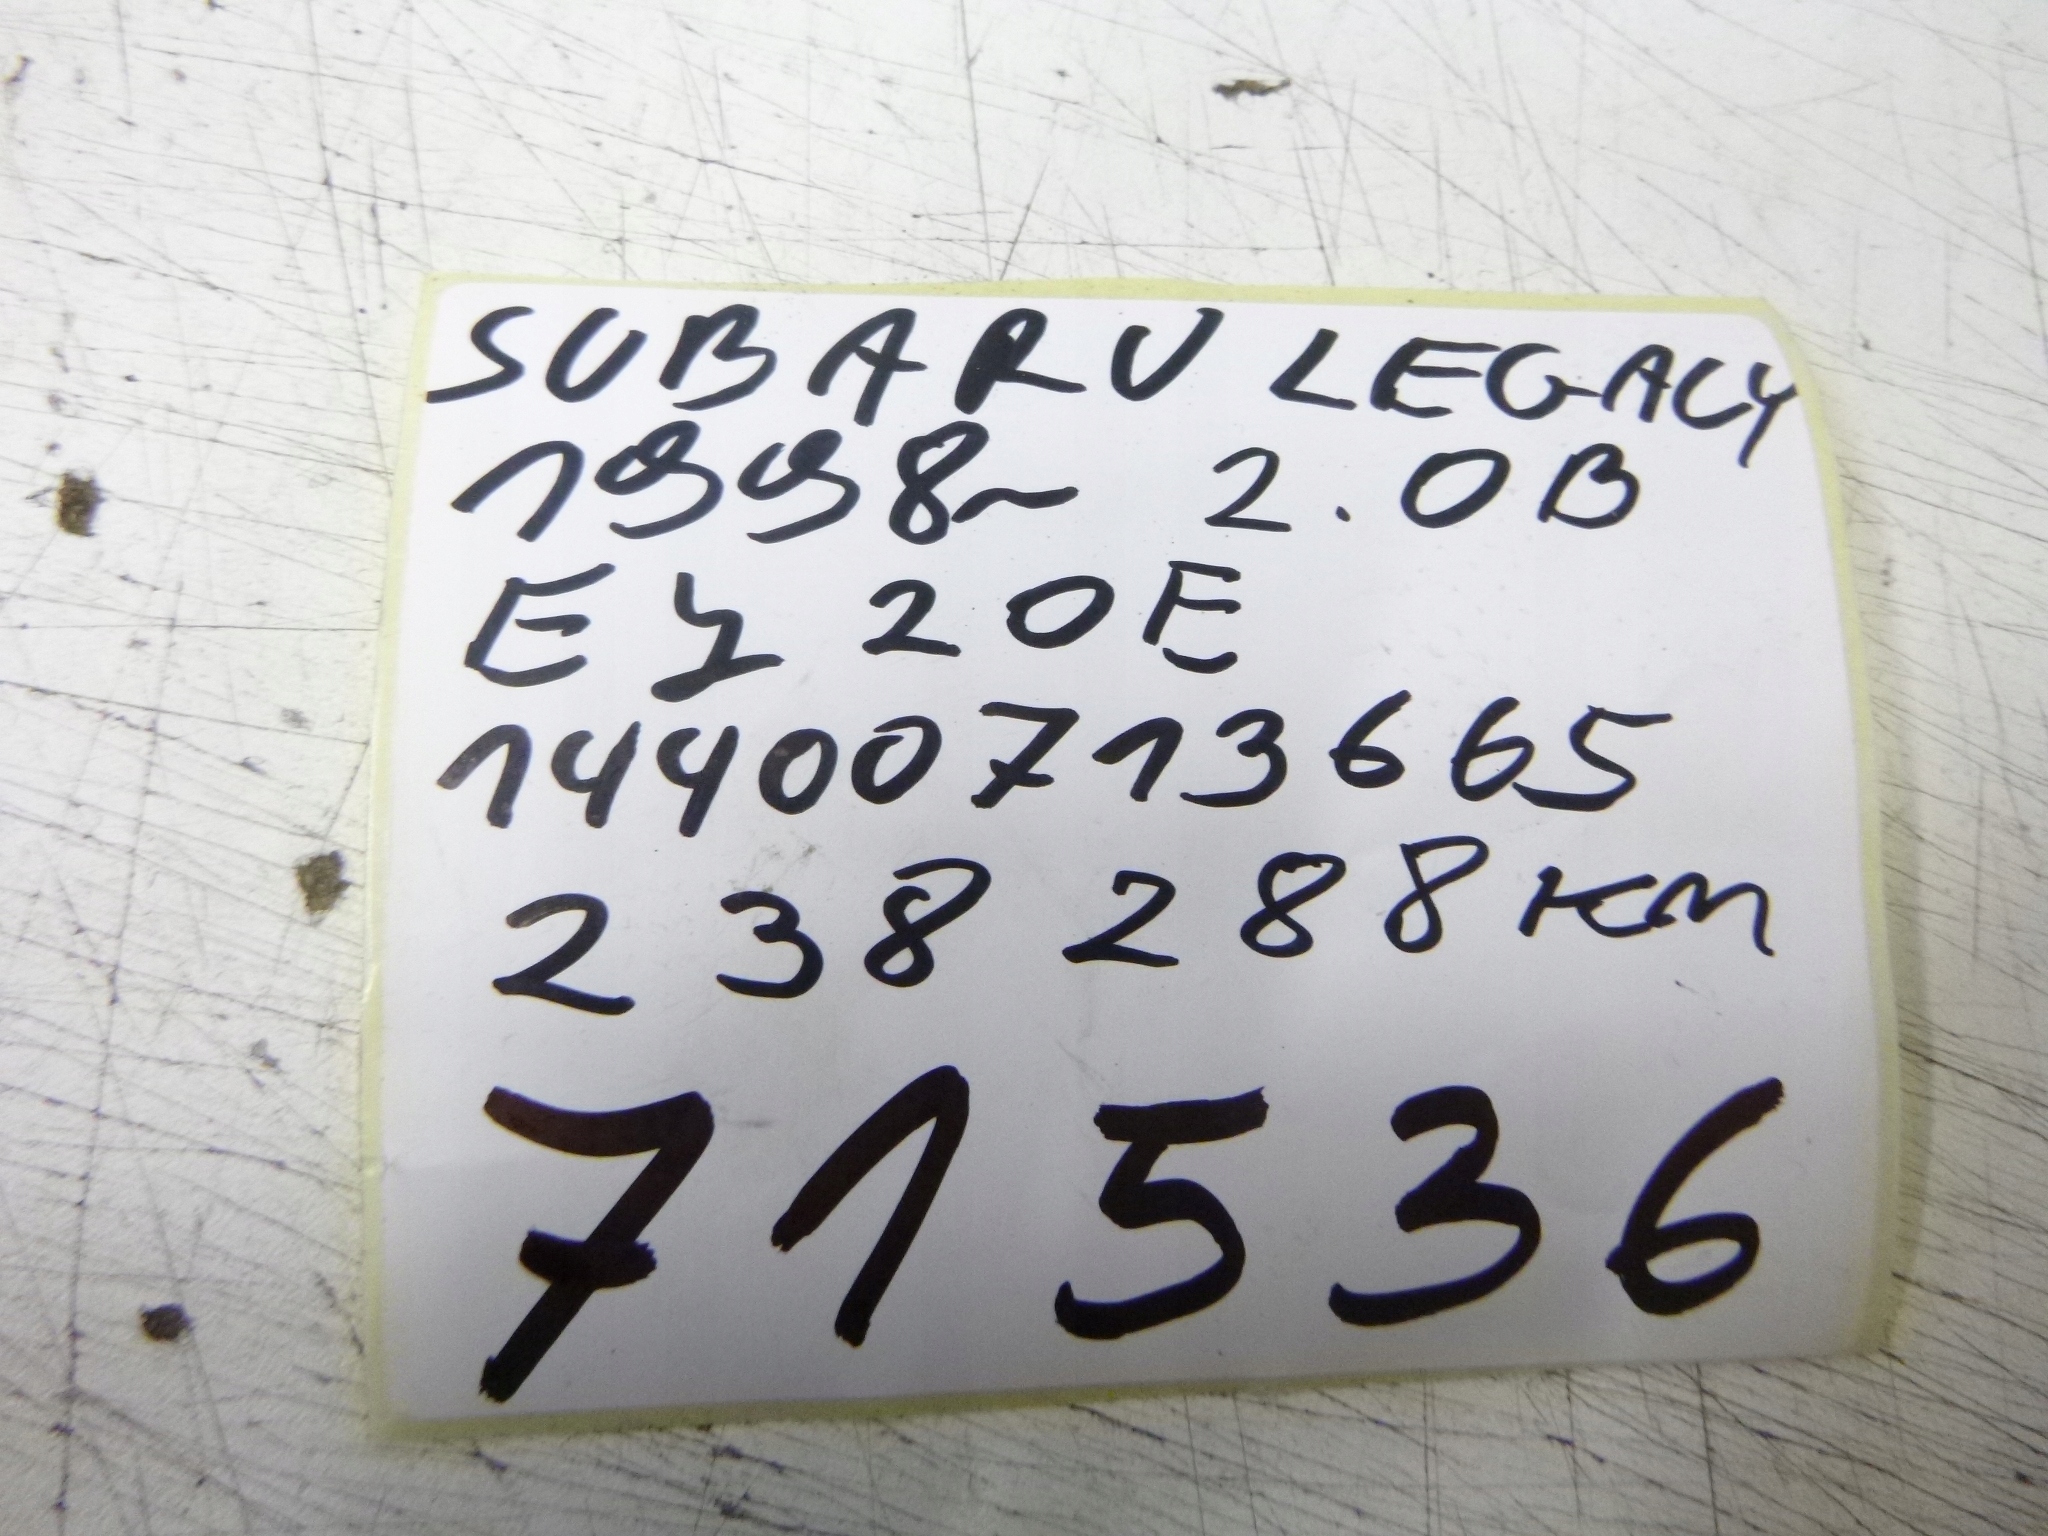 SUBARU LEGACY
1998~ 2.0B
EJ 20E
14400713665
238 288 KM
71536